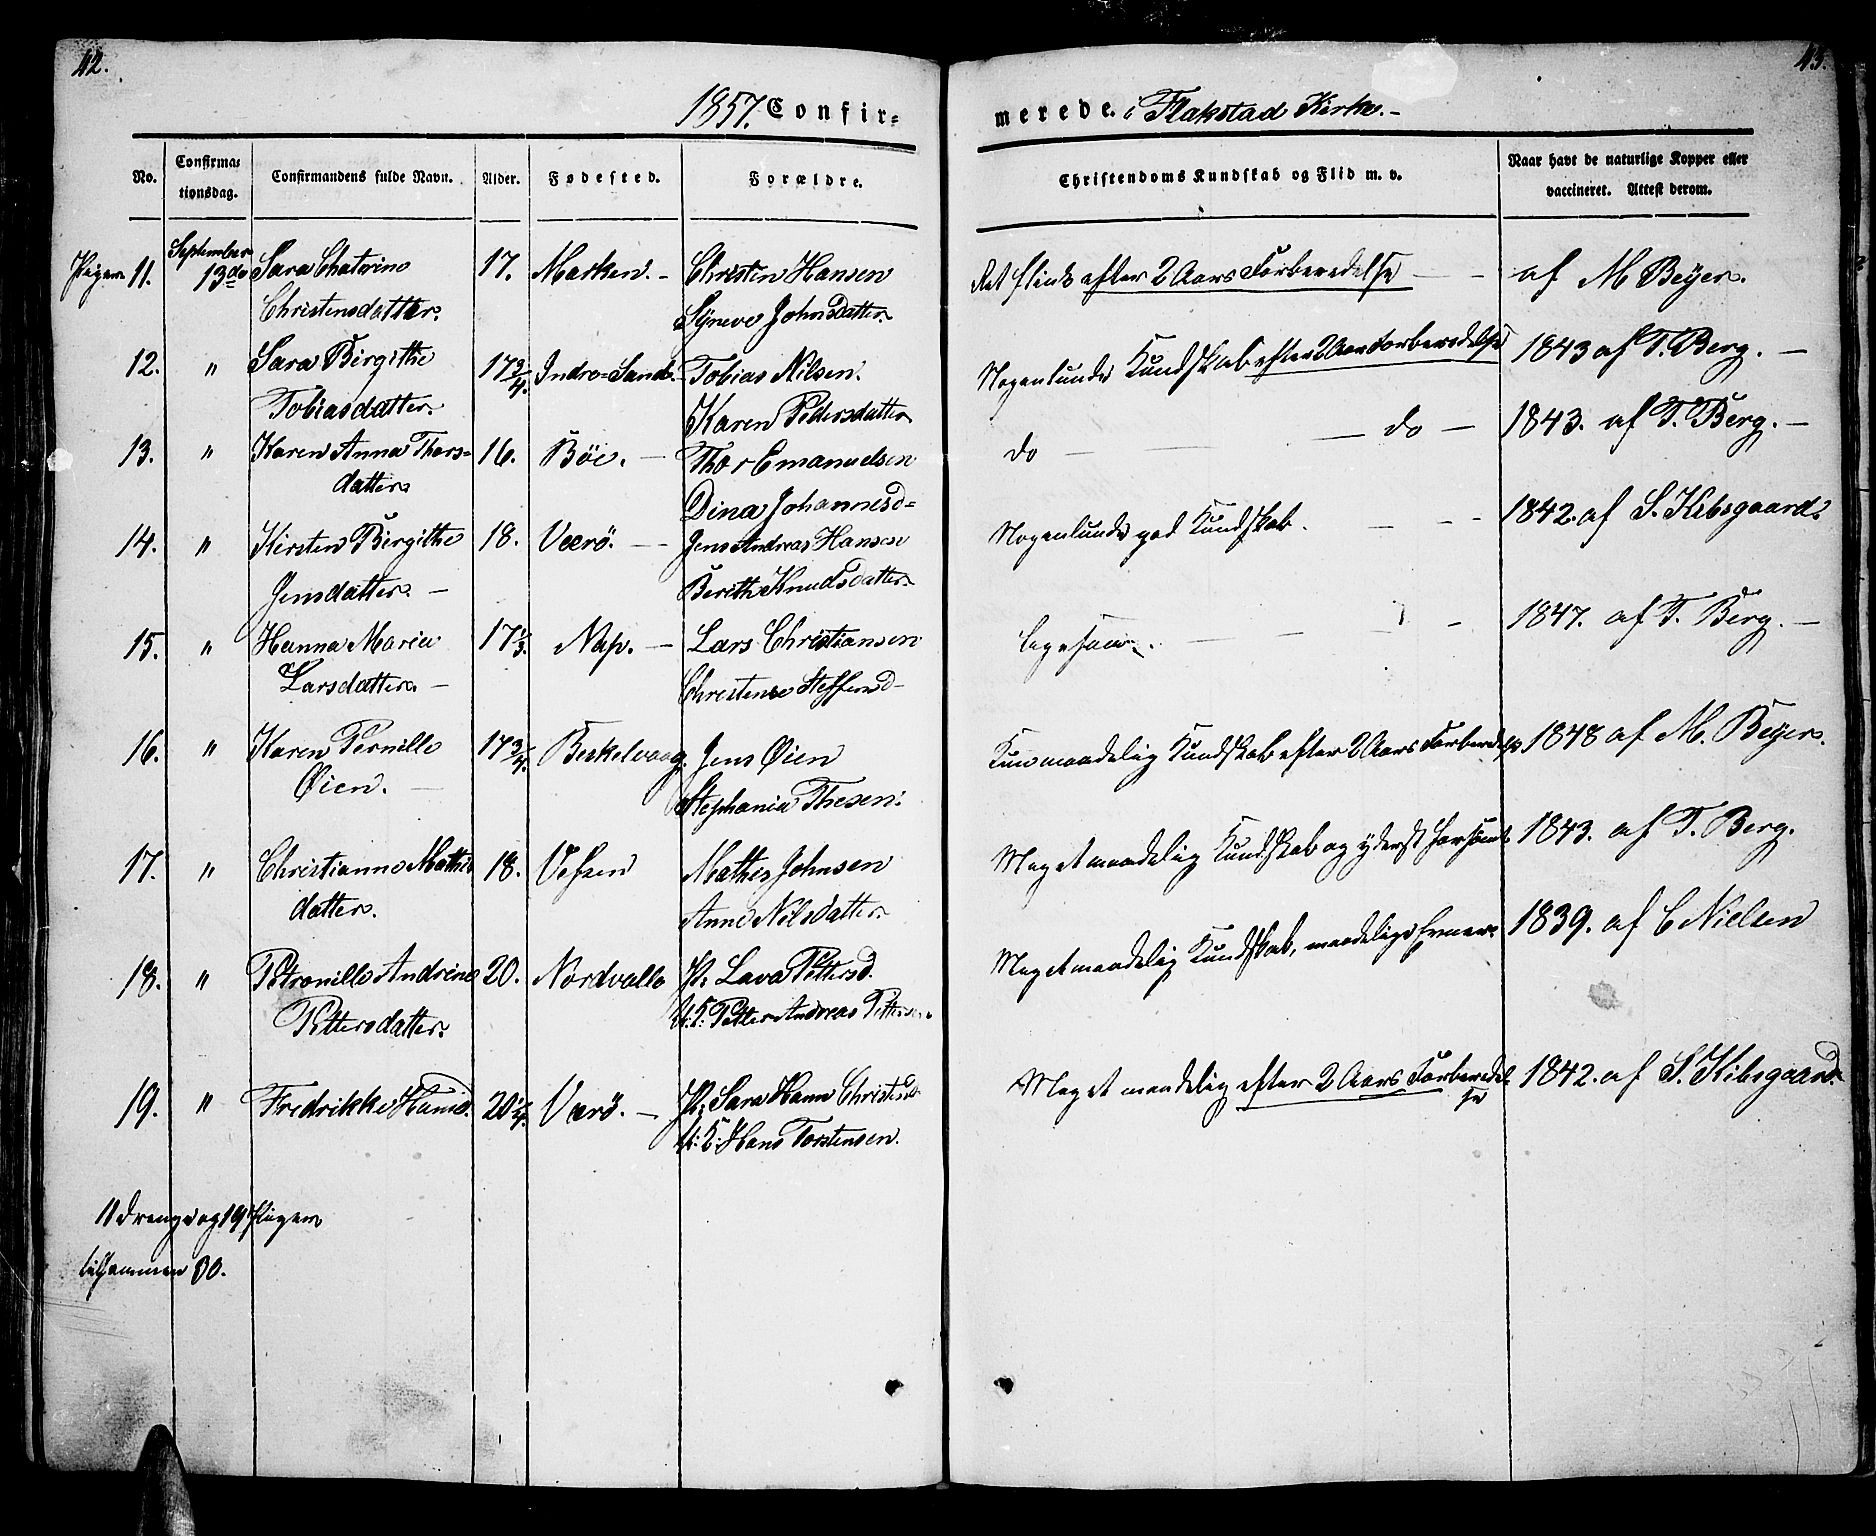 42.
43.
1857. Confir=
merede. i Flakstad Kirke.-
No.
Confirma=
tionsdag.
Confirmandens fulde Navn.
Alder.
Fødested.
Forældre.
Christendoms Kundskab og Flid m. v.
Naar havt de naturlige Kopper eller
vaccineret. Attest derom.
Piger 11. September 13de Sara Chatrine 17. Marken. - Christen Hansen
Christensdatter. Syneve Johnsdatter.
efter 2 Aars Forberedelse — af M Beyer.
12. " Sara Birgithe 17 3/4. Indre=Sand. Tobias Nilsen.
Tobiasdatter. Karen Pedersdatter
Nogenlunde Kundskab efter 2 Aars Forberedelse 1843 af T. Berg. —
13. " Karen Anna Thors= 16. Böe. — Thor Emanuelsen
datter Dina Johannesd=
do — — do — 1843. af T. Berg. —
14. " Kirsten Birgithe 18. Værö. — Jens Andreas Hansen
Jensdatter. — Berith Knudsdatter.
Nogenlunde god Kundskab. — 1842. af S. Kibsgaard.
15. " Hanna Maria 17 1/3. Nap. — Lars Christiansen
Larsdatter. — Christense Steffensd-
ligesaa. — 1847. af T. Berg. —
16. " Karen Pernille 17 3/4. Beskelvaag. Jens Øien
Øien. — Stephania Thesen.
Kun maadelig Kundskab efter 2 Aars Forberedelse 1848 af M. Beyer.
17. " Christianne Mathis 18. Vefsen Mathis Johnsen
datter. Anne Nilsdatter.
Meget maadelig Kundskab og yderst forsömt 1843. af T. Berg.
18. " Petronille Andrine 20. Nordvalle P: Lava Pettersd.
Pettersdatter. U. K: Petter Andreas Pettersen.
Meget maadelig Kundskab, maadelige Evner. 1839. af C Nielsen
19. " Fredrikke Hansd. 20 1/4. Værö. — P: Sara Hanna Christensd.
U: K: Hans Torstensen.
Meget maadelig efter 2 Aars Forberedel
se 1842. af S. Kibsgaard.
11 Drenge og 19 Piger
tilsammen 30.